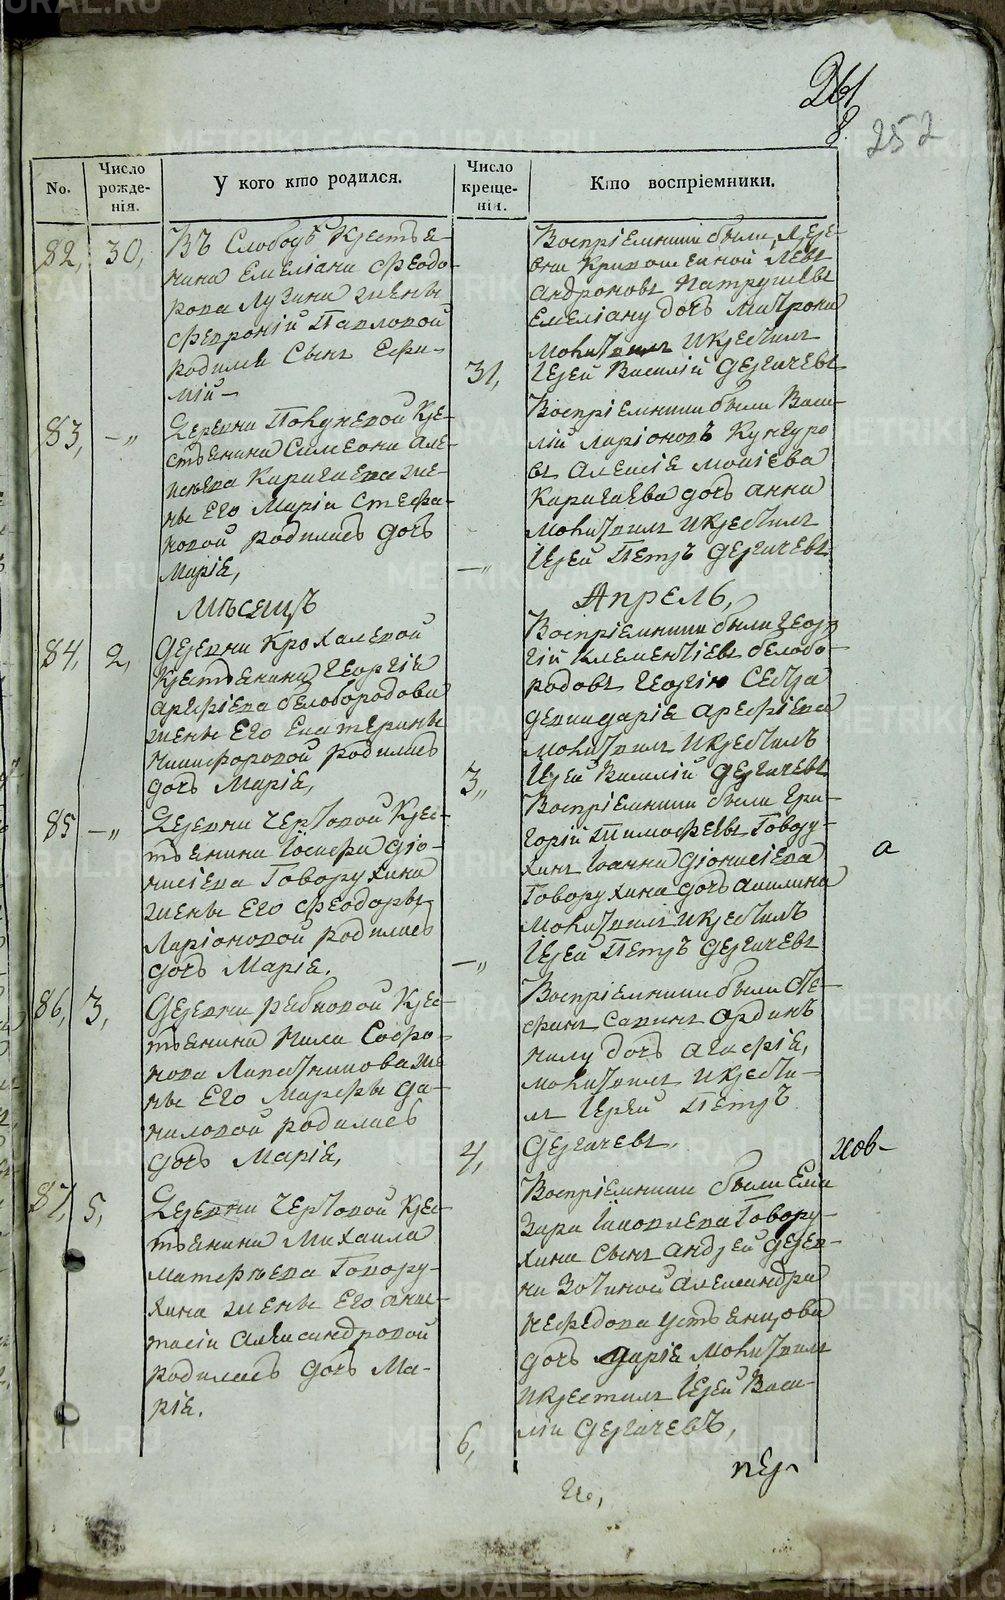 261
8
252
No.
Число рожде-нія.
У кого кто родился.
Число креще-нія.
Кто воспріемники.
82, 30,
Въ Слободѣ Крестья-
нина Емеліана Ѳеодо-
рова Лузина жены
Февроніи Павловой
родился Сынъ Ефи-
мій
31,
Воспріемники были дере-
вни Левъ
Андроновъ Патрушевъ
Емеліану дочь Матрона
Молитвилъ И Крестилъ
Іерей Василій Дерягачевъ
83, - „
Деревни Кре-
стьянина Симеона Але-
Карагаева же-
ны Его Маріи Стефа-
новой родилась дочь
Марія,
- „
Воспріемники были Васи-
лій Ларіоновъ Кунгуро
въ Алексія Моисіева
Карагаева дочь Анна
Молитвилъ И Крестилъ
Іерей Петръ Дерягачевъ
Мѣсяцъ Апрель,
84, 2,
Деревни Крохалевой
Крестьянина Георгія
Арефіева белобородова
жены Его Екатерины
Никифоровой родилась
дочь Марія,
3,,
Воспріемники были Геор
гій Клементіевъ белобо-
родовъ Георгію Сестра
девица Дарія Арефіева
Молитвилъ И Крестилъ
Іерей Василій Дерягачевъ
85 - „
Деревни Чертовой Крес-
тьянина Іосифа Діо-
нисіева Говорухина
жены Его Ѳеодоры
Ларіоновой родилась
дочь Марія.
- „
Воспріемники были Гри-
горій Тимофѣевъ Говору-
хинъ Іоанна Діонисіева
Говорухина дочь Акилина
Молитвилъ и Крестилъ
Іерей Петръ Дерягачевъ
а
86, 3,
Деревни Рябковой Крес-
тьянина Нила Софро-
нова же
ны Его Марфы Да-
ниловой родилась
дочь Марія,
4,
Воспріемники были
Савинъ Ординъ
Нилу дочь Агафія,
Молитвилъ И Крести-
лъ Іерей Петръ
Дерягачевъ.
87, 5,
Деревни Чертовой Крес-
тьянина Михаила
Матфѣева Говору-
хина жены Его Анас-
тасіи Александровой
родилась дочь Ма-
рія.
6,
Воспріемники были Елиа
зара Іаковлева Говору-
хина Сынъ Андрей дерев-
ни Зотиной Александра
Нефедова Устьянцова
дочь Дарія Молитвилъ
И Крестилъ Іерей Васи-
лій Дерягачевъ,